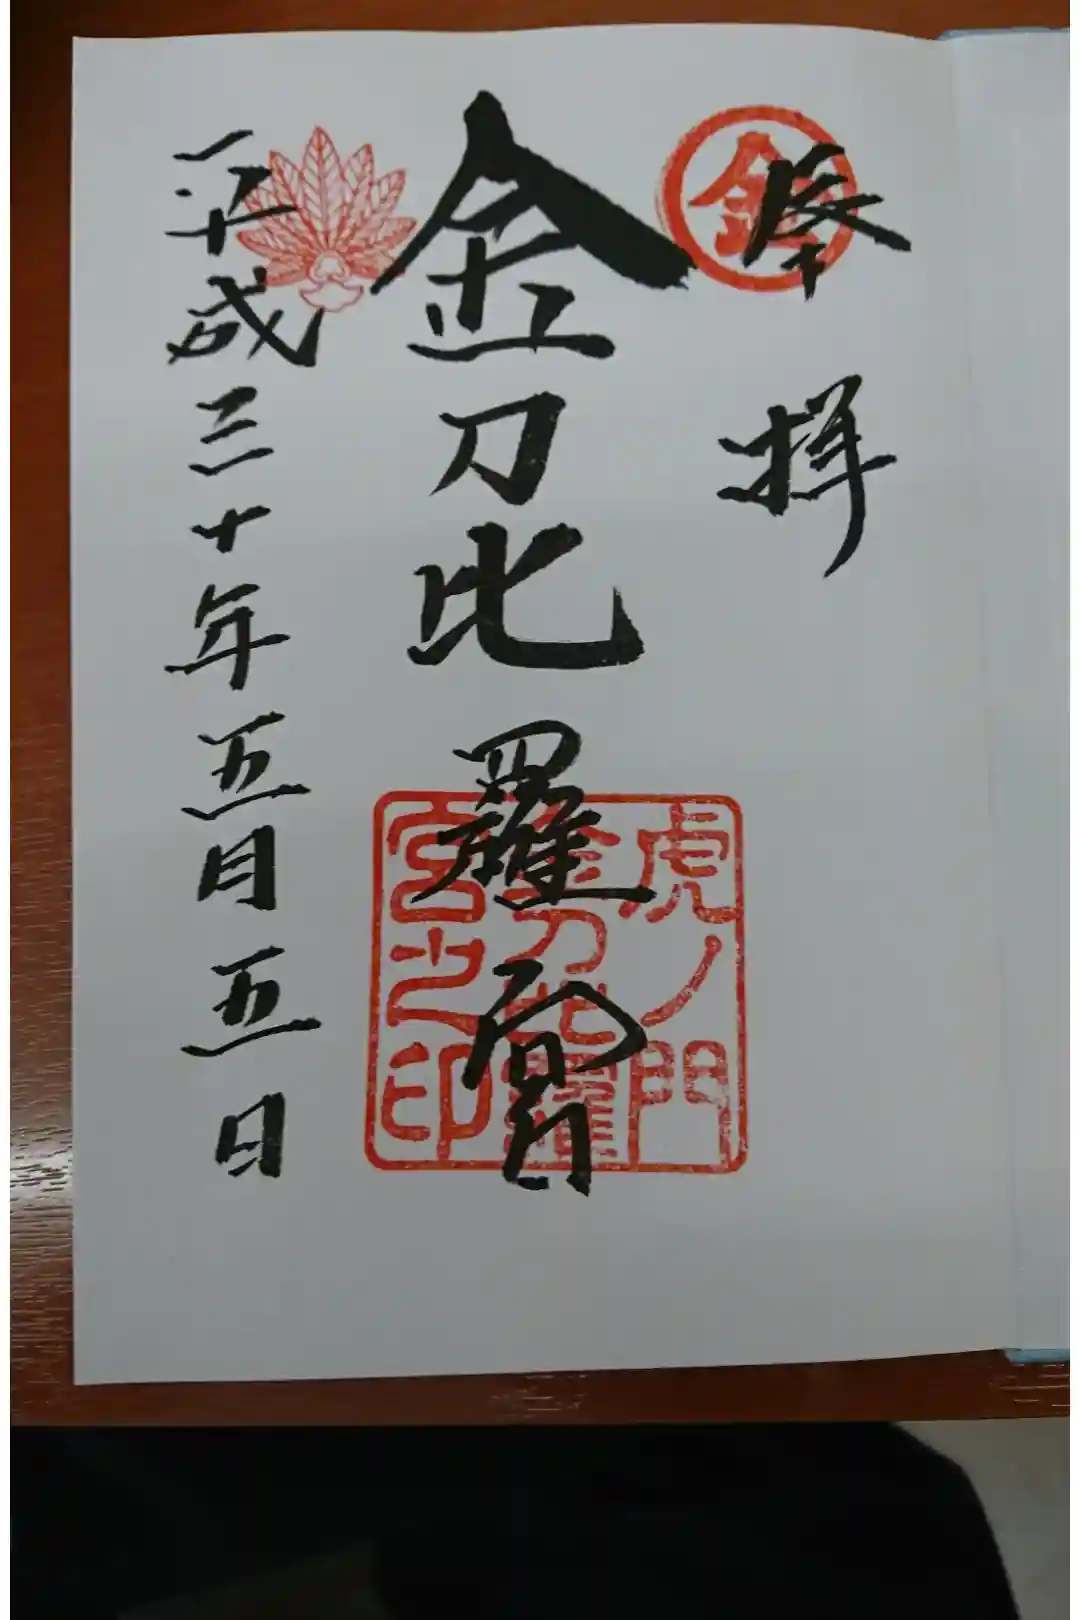 奉拝
金
金刀比羅宮
虎ノ門
金刀比羅
宮之印
平成三十年五月五日